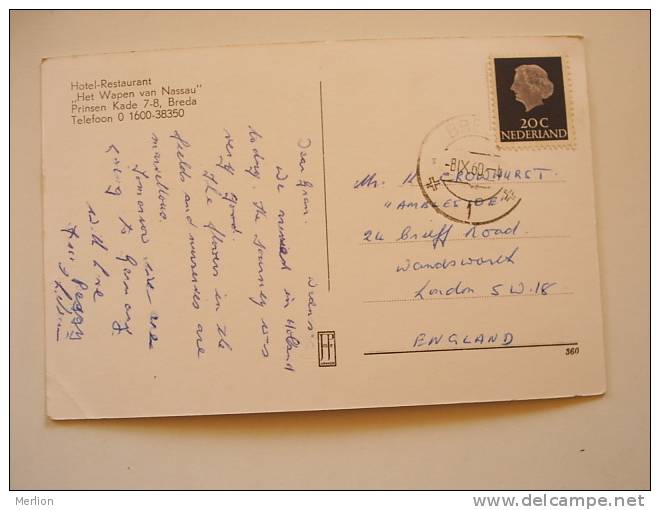 Hotel-Restaurant
„Het Wapen van Nassau"
Prinsen Kade 7-8, Breda
Telefoon 0 1600-38350
Dear Gran.
We arrived in Holland
today. The Journey was
very good.
The flowers in the
fields and nurseries are
marvellous.
Tomorrow we are
going to Germany
With love
from Peggy
20 C
NEDERLAND
-8 IX 60
Mr. H
"AMBLESIDE"
24 Road
Wandsworth
London S.W.18
ENGLAND
360
Merlion
delcampe.net